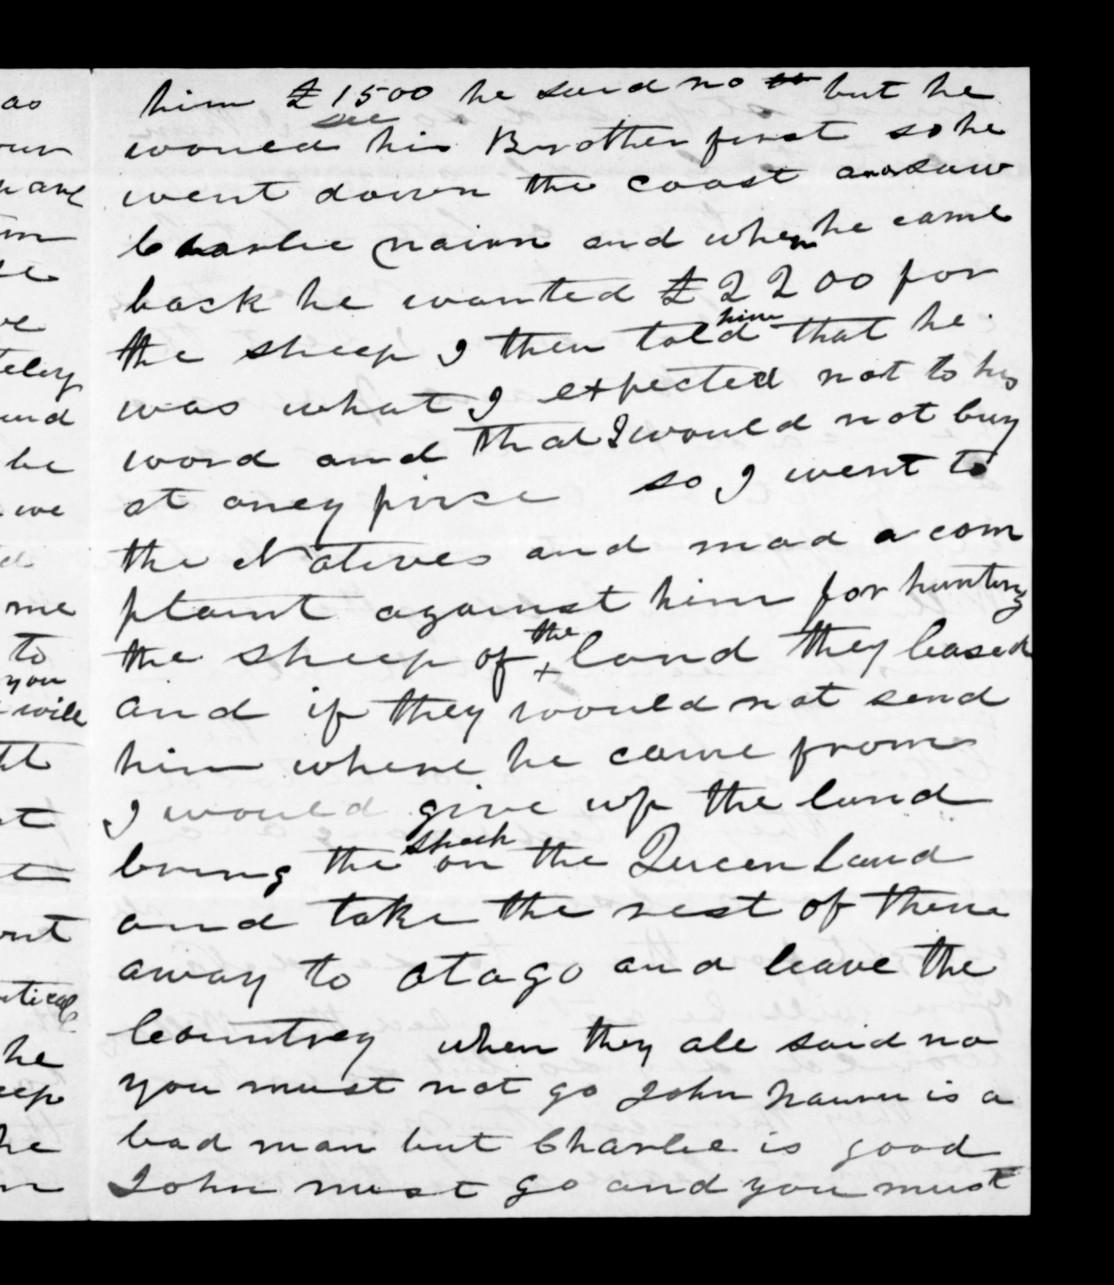 him £1500 he said no but he
would see his Brother first so he
went down the coast and saw
Charlie nairn and when he came
back he wanted £2200 for
the sheep I then told him that he
was what I expected not to his
word and that I would not buy
at aney price so I went to
the Natives and mad a com
plaint against him for hunting
the sheep of the land they leased
and if they would not send
him where he came from
I would give up the land
bring the sheep on the Queen land
and take the rest of them
away to Otago and leave the
Countrey when they all said no
you must not go John nairn is a
bad man but Charlie is good
John must go and you must
ao
our
im
ve
tely
and
be
we
d
me
to
you
will
st
he
eep
he